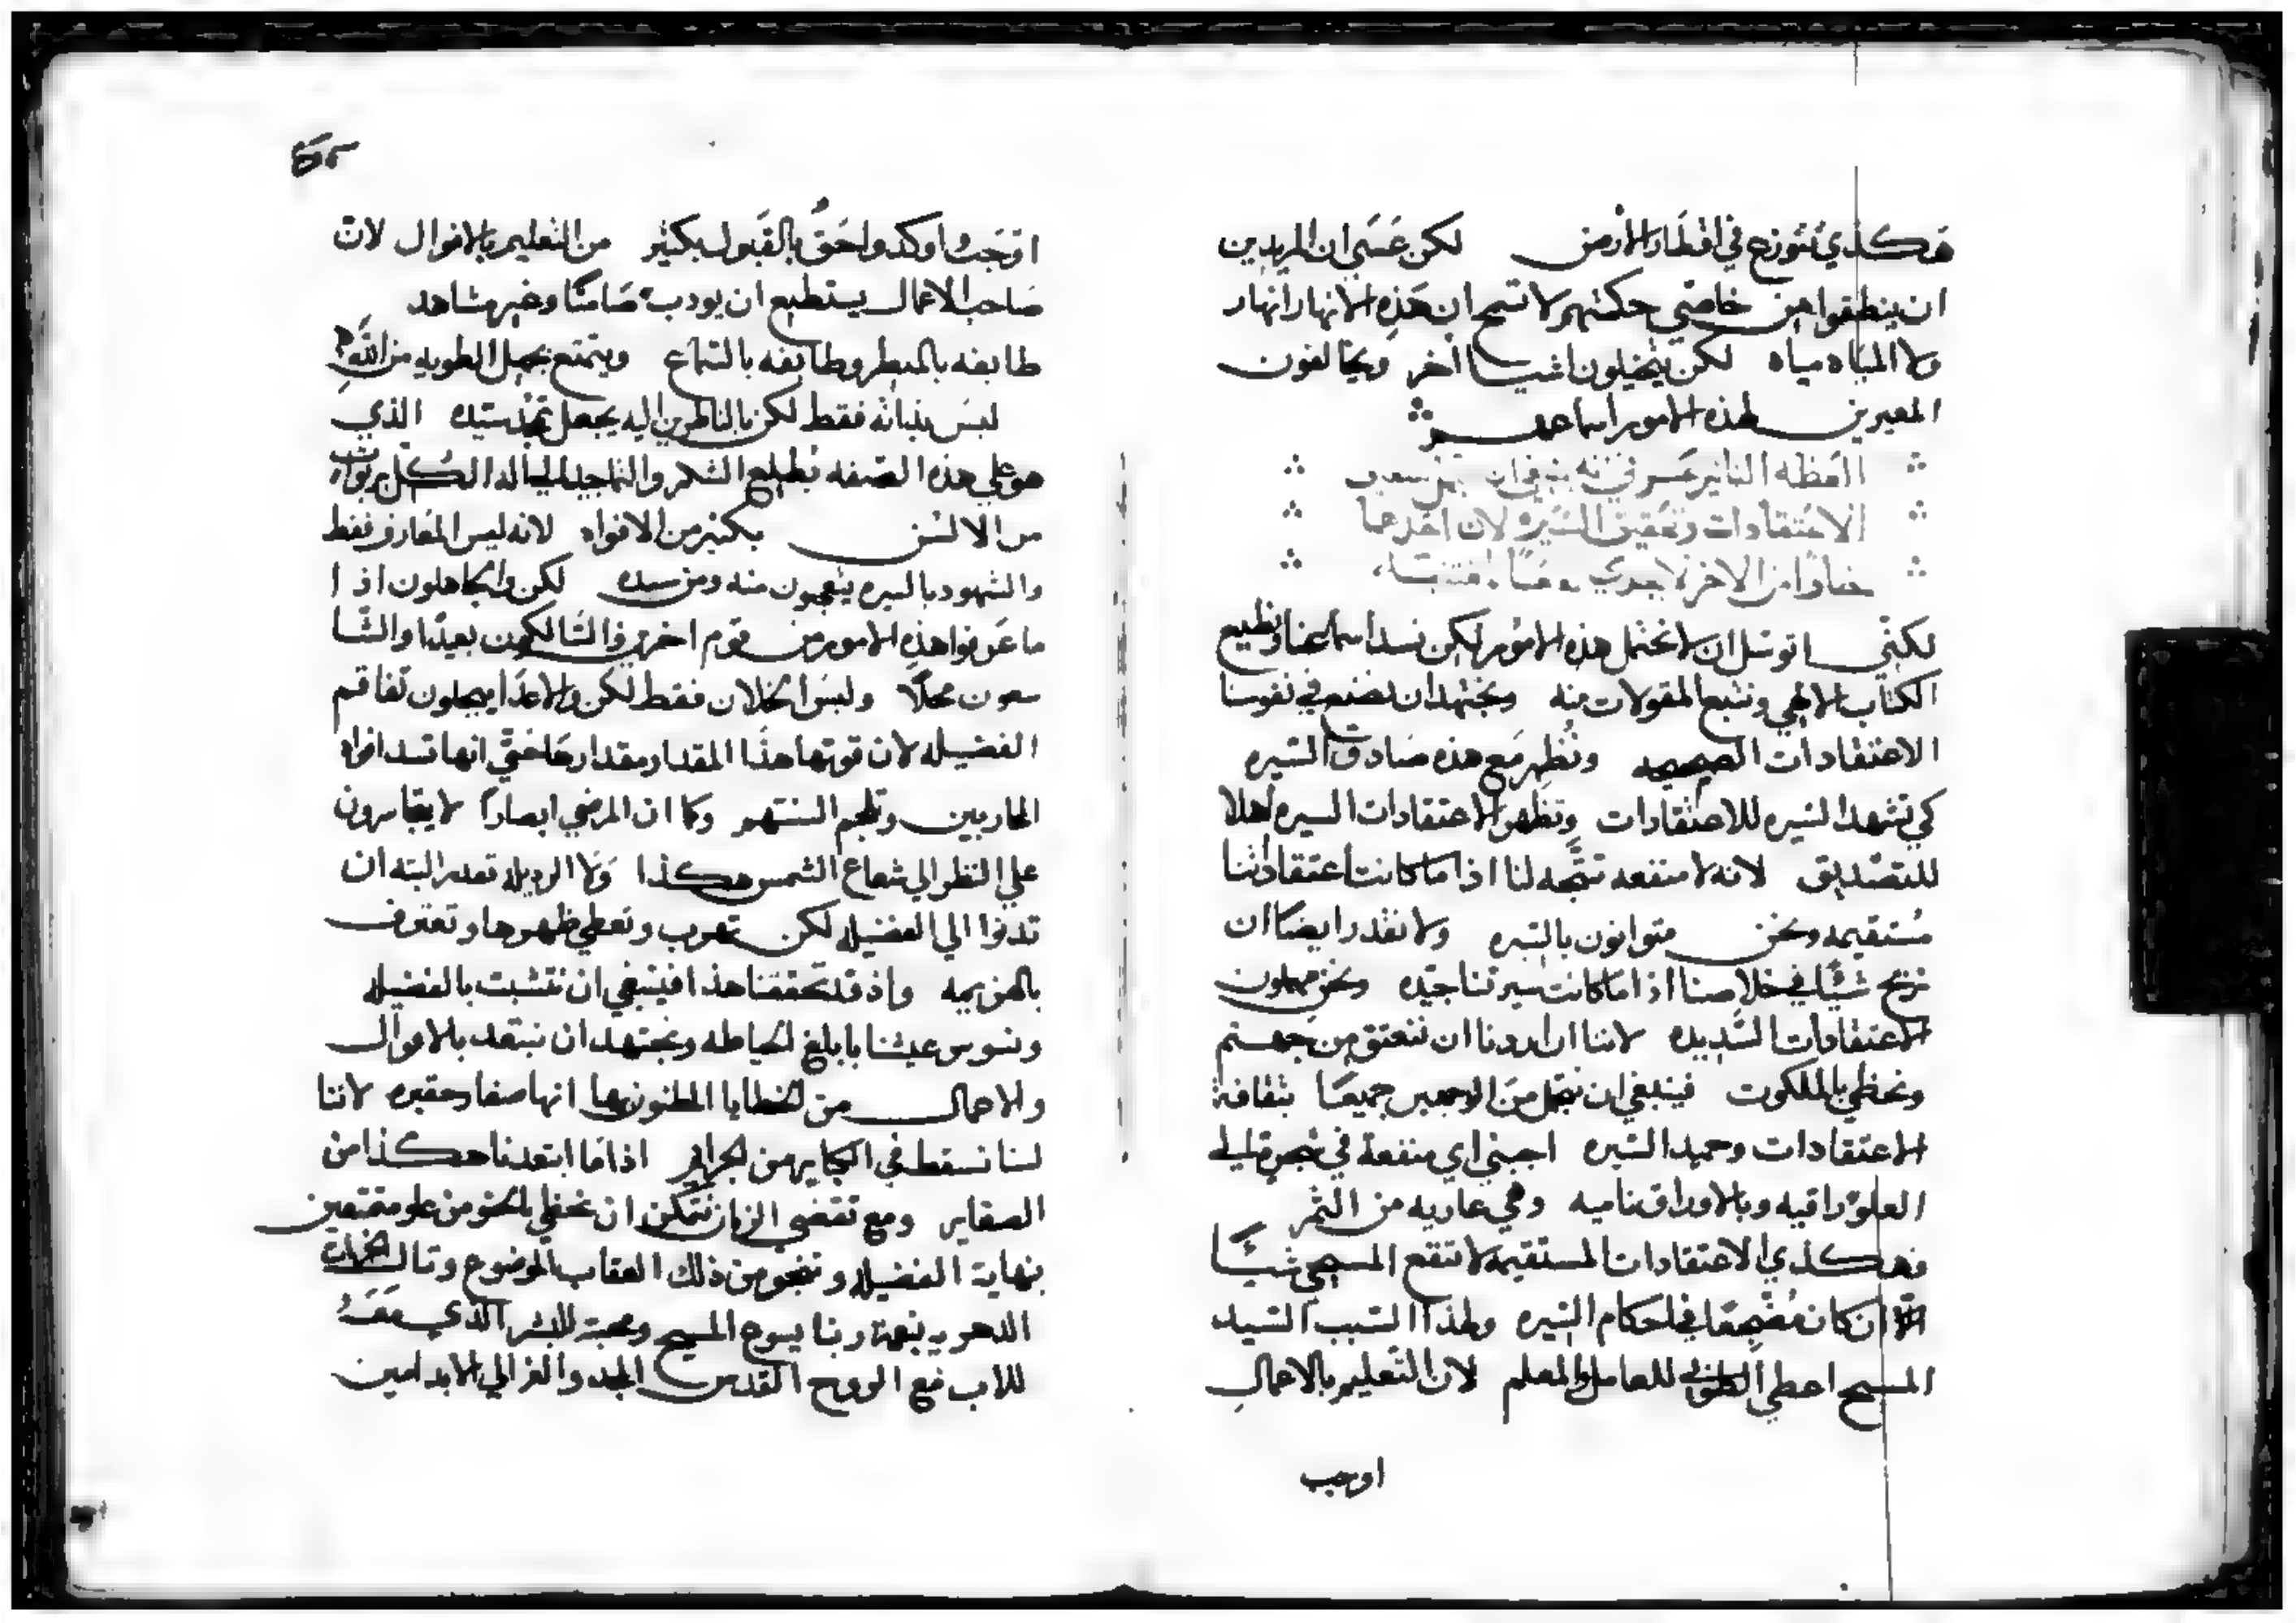 هكذي تتوزع في اقطار الارض لكن عسى ان المريدين
ان ينطقوا من خاصتي حكمتهم لا تسمح ان هذه الانهار انهار
ولا المياه مياه لكن يتخيلون اشيا أخر ويخالفون
المعبرين لهذه الامور اسماعهم
العظه الثانيه عشر في انه ينبغي ان
الاعتقادات وتحقيق السيره لان احدهما
خلوًا من الاخر لا يجدي
لكنني اتوسل ان لا نحتمل هذه الامور لكن نسد اسماعنا ونطيع
الكتاب الالهي ونتبع المقولات منه ونجتهد ان نضع في نفوسنا
الاعتقادات الصحيحه ونظهر مع هذه صادق السيره
كي تشهد السيره للاعتقادات وتظهر الاعتقادات السيره اهلا
للتصديق لانه لا منفعه تتجه لنا اذا ما كانت اعتقاداتنا
مستقيمه ونحن متوانون بالسيره ولا نقدر ايضًا ان
نربح شيًا في خلاصنا اذا ما كانت سيرتنا جيده ونحن مهملون
الاعتقادات السديده لاننا ان اردنا ان ننعتق من جهنم
ونحظي بالملكوت فينبغي ان نتجمل من الوجهين جميعًا بثقافة
الاعتقادات وحميد السيره اجبني اي منفعة في شجرة الى
العلو راقيه وبالاوراق ناميه وهي عاريه من الثمر
فهكذي الاعتقادات المستقيمه لا تنفع المسيحي شيًا
الا ان كان مضجعًا في احكام السيره ولهذا السبب السيد
المسيح اعطي الطوبي للعامل والمعلم لان التعليم بالاعمال
اوجب
اوجب واوكد واحق بالقبول بكثير من التعليم بالاقوال لان
صاحب الاعمال يستطيع ان يودب صامتًا وغير مشاهد
طايفه بالمنظر وطايفه بالسماع ويتمتع بجميل الطويه من الله
ليس بذاته فقط لكن بالناظرين اليه يجعل تمجد سيده الذي
هو علي هذه الصفه يطلع الشكر والتماجيد الي اله الكل بربوات
من الالسن بكثير من الافواه لانه ليس المعارف فقط
والشهود بالسيره يتعجبون منه ومن سيده لكن والجاهلون اذا
ما عرفوا هذه الامور من قوم اخرين والساكنون بعيدًا والشا
سعون محلًا وليس الخلان فقط لكن والاعدا يبجلون تفاقم
الفضيله لان قوتها هذا المقدار مقدارها حتي انها تسد افواه
المحاربين وتلجم السنتهم وكما ان المرضي ابصارًا لا يتجاسرون
علي النظر الي شعاع الشمس هكذا ولا الرذيله تقدر البته ان
تدنوا الي الفضيله لكن تهرب وتعطي ظهورها وتعترف
بالهزيمه واذ قد تحققنا هذا فينبغي ان نتشبت بالفضيله
ونسوس عيشنا بابلغ الحياطه ونجتهد ان نبتعد بالاقوال
والاعمال من الخطايا المظنون بها انها صغار حقيره لاننا
لسنا نسقط في الكباير من الجراير اذا ما ابتعدنا هكذا من
الصغاير ومع تقضي الزمان نتمكن ان نحظي بالحنو من علو متمتعين
بنهاية الفضيله وننجو من ذلك العقاب الموضوع وننال الخيرات
الدهريه بنعمة ربنا يسوع المسيح ومحبته للبشر الذي معه
للاب مع الروح القدس المجد والعز الي الابد امين